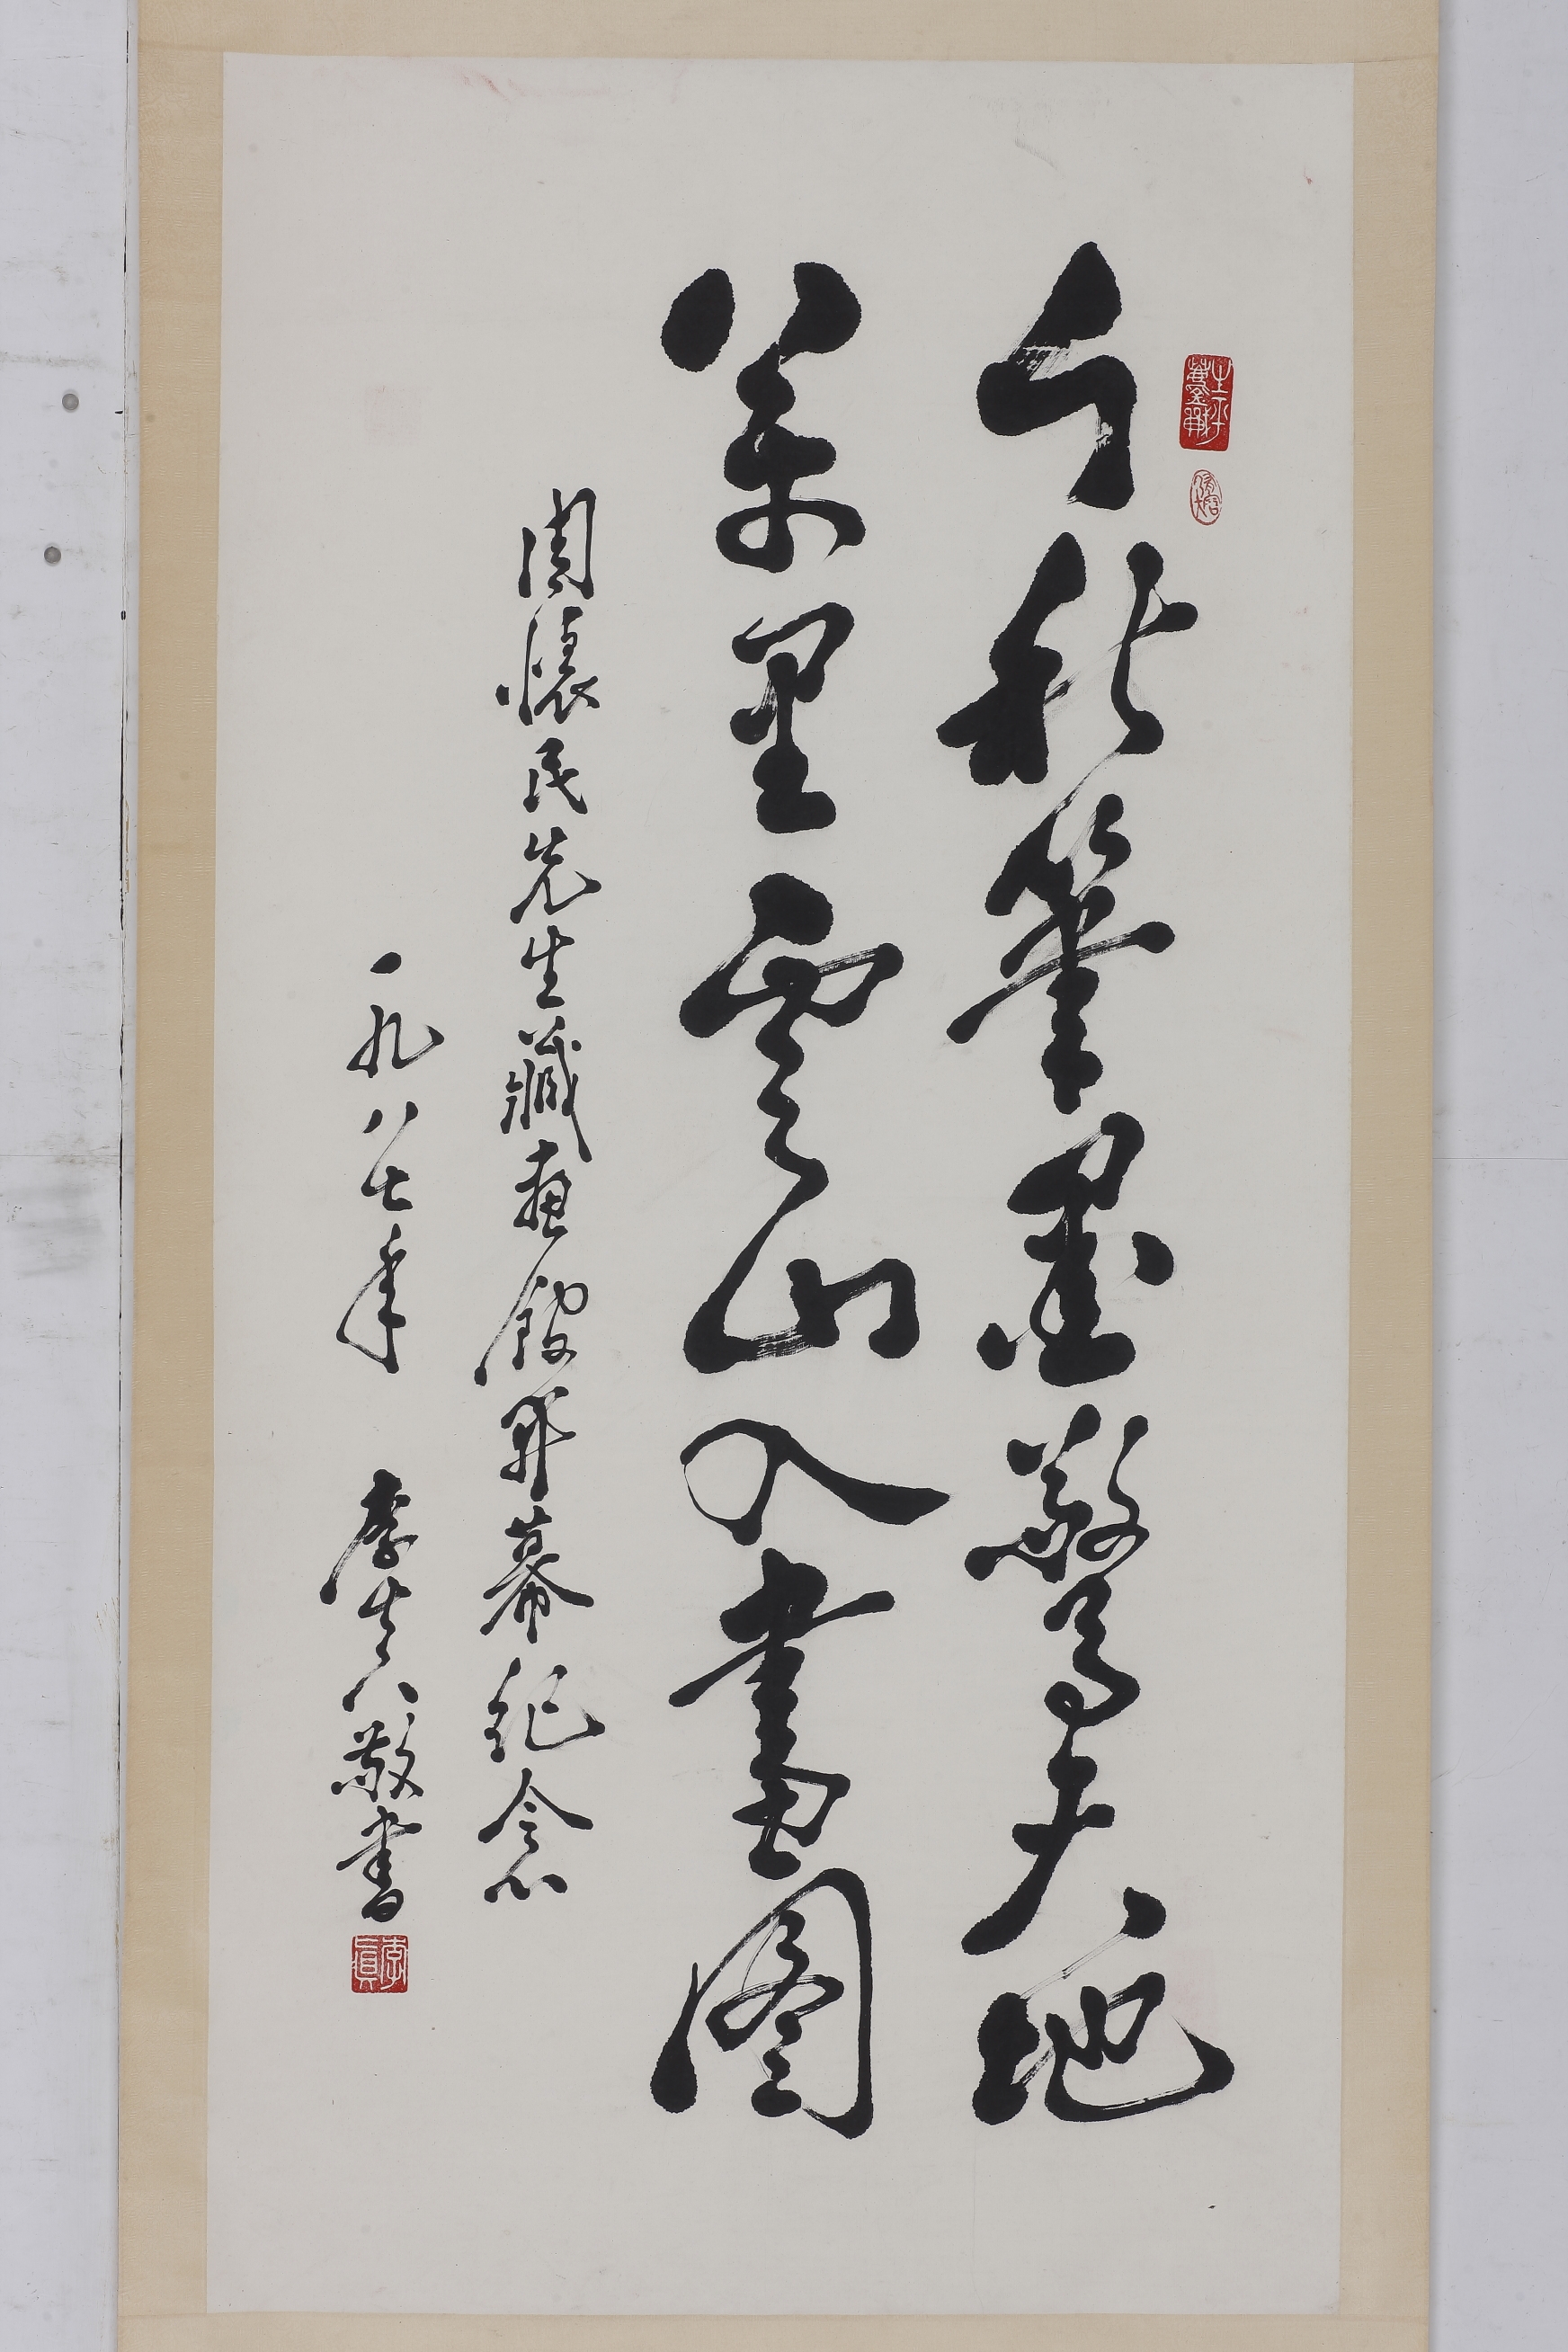 千秋筆墨驚天地
萬里雲山入畫圖
周懷民先生藏畫館開幕纪念
一九八七年 李真 敬書
李真